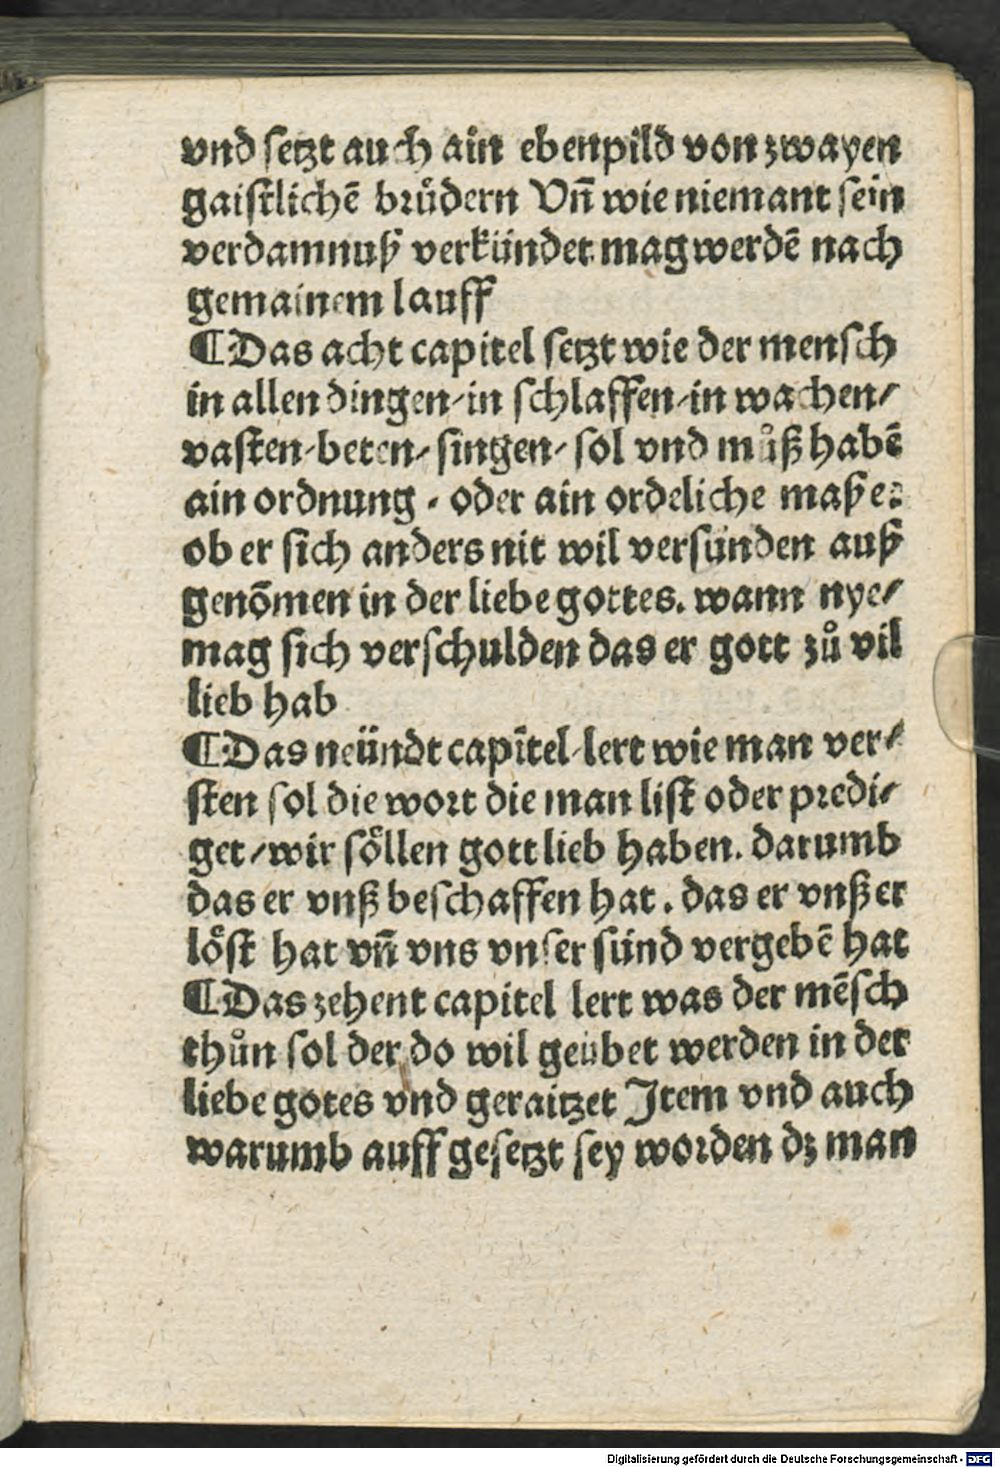 vnd setzt auch ain ebenpild von zwayen
gaistlichē brůdern Vn̄ wie niemant sein
verdamnuß verkündet mag werdē nach
gemainem lauff
¶Das acht capitel setzt wie der mensch
in allen dingen/in schlaffen/in wachen/
vasten/beten/singen/sol vnd můß habē
ain ordnung/oder ain ordeliche maße:
ob er sich anders nit wil versünden auß
genōmen in der liebe gottes. wann nye/
mag sich verschulden das er gott zů vil
lieb hab
¶Das neündt capitel lert wie man ver/
sten sol die wort die man list oder predi/
get/wir soͤllen gott lieb haben. darumb
das er vnß beschaffen hat. das er vnß er
loͤst hat vn̄ vns vnser sünd vergebē hat
¶Das zehent capitel lert was der mēsch
thůn sol der do wil geübet werden in der
liebe gotes vnd geraitzet Item vnd auch
warumb auff gesetzt sey worden dz man
Digitalisierung gefördert durch die Deutsche Forschungsgemeinschaft - DFG